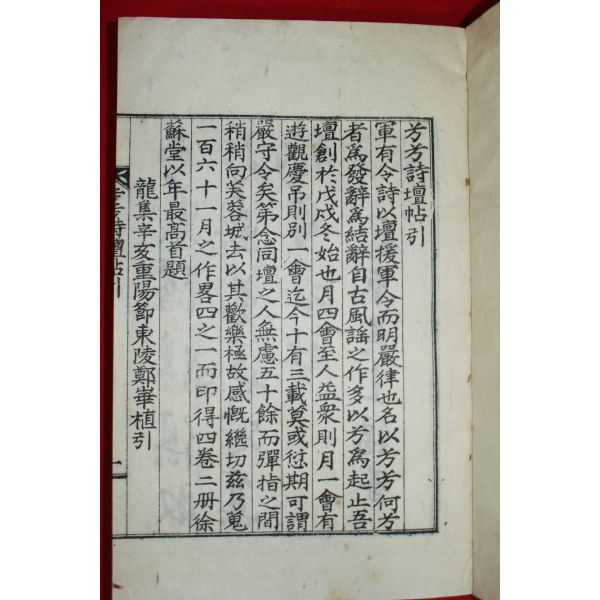 芳芳詩壇帖引
軍有令詩以壇援軍令而明嚴律也名以芳芳何芳
者為發辭為結辭自古風謠之作多以芳為起止吾
壇創於戊戌冬始也月四會至人益衆則月一會有
遊觀慶吊則別一會迄今十有三載莫或愆期可謂
嚴守令矣第念同壇之人無慮五十餘而彈指之間
稍稍向芙蓉城去以其歡樂極故感慨繼切玆乃蒐
一百六十一月之作畧四之一而印得四卷二册徐
蘇堂以年最高首題
龍集辛亥重陽節東陵鄭崋植引
芳芳詩壇帖引
一